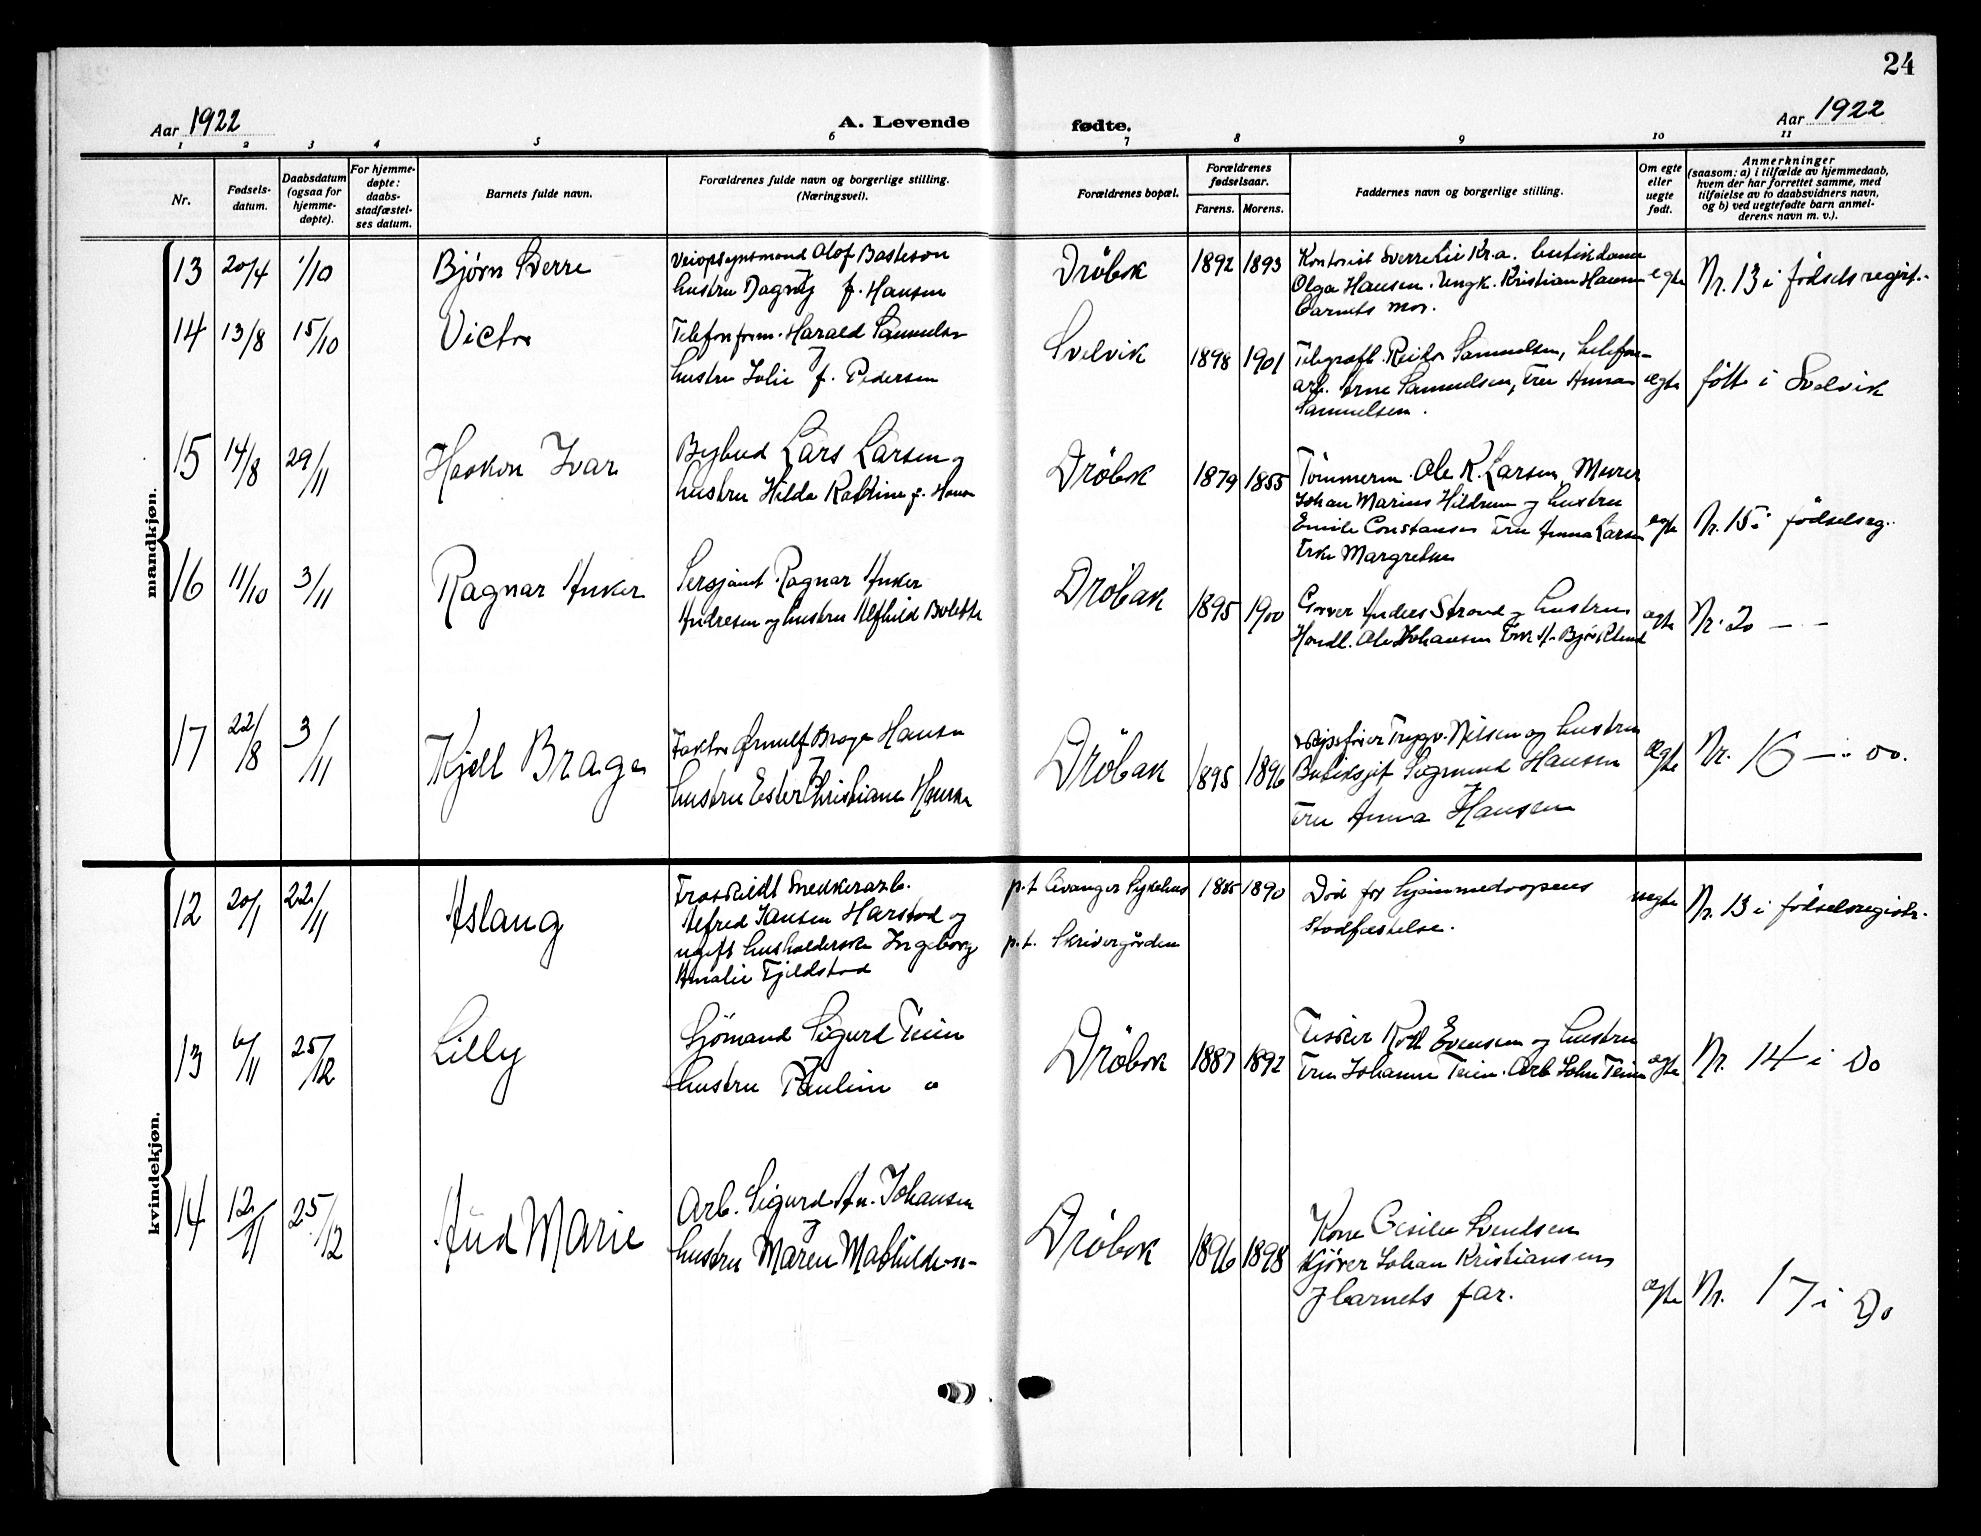 24
Aar 1922
A. Levende fødte.
Aar 1922
1 2 3 4 5 6 7 8 9 10 11
Nr.
Fødsels-
datum.
Daabsdatum
(ogsaa for
hjemme-
døpte).
For hjemme-
døpte:
daabs-
stadfæstel-
ses datum.
Barnets fulde navn.
Forældrenes fulde navn og borgerlige stilling.
(Næringsvei).
Forældrenes bopæl.
Forældrenes
fødselsaar.
Farens. Morens.
Faddernes navn og borgerlige stilling.
Om egte
eller
uegte
født.
Anmerkninger
(saasom: a) i tilfælde av hjemmedaab,
hvem der har forrettet samme, med
tilføielse av to daabsvidners navn,
og b) ved uegtefødte barn anmel-
derens navn m. v.).
mandkjøn.
13 20/4 1/10 Bjørn Sverre
Veiopsynsmand Olof Basteson
hustru Dagny f. Hansen
Drøbak 1892 1893
Kontorist Sverre Lie Kr.a.
Olga Hansen. Ungk. Kristian Hansen
barnets mor.
egte
Nr. 13 i fødselsregist.
14 13/8 15/10 Victor
Telefonform. Harald Samuelsen
hustru Julie f. Pedersen
Svelvik 1898 1901
Samuelsen, telefon-
arb. Arne Samuelsen, Fru Anna
Samuelsen.
ægte
født i Svelvik
15 14/8 29/11 Haakon Ivar
Bybud Lars Larsen og
hustru Hilda
Drøbak 1879 1855
Tømmerm. Ole K. Larsen, Murer
Johan Marius Hildrum og hustru
Emilie Constanse Fru Anna Larsen
Margrethe
egte
Nr. 15 i fødselsreg.
16 11/10 3/11 Ragnar Anker
Sersjant Ragnar Anker
Andresen og hustru Alfhild Bolette
Drøbak 1895 1900
Anders Strand og hustru
Handl. Ole Johansen
ægte
Nr. 20 — -
17 22/8 3/11 Kjell Brage
Faktor Ørnulf Brage Hansen
hustru Ester Christiane Hansen
Drøbak 1895 1896
Trygv. Nilsen og hustru
Sigmund Hansen
Fru Anna Hansen
Ægte
Nr. 16 — do.
kvindekjøn.
12 20/1 22/11 Aslaug
Fraskildt Snedkerarb.
Alfred Jansen Harstad og
ugift husholderske Ingeborg
Amalie Fjeldstad
p.t. Sykehus
p.t. Skrivergården
1885 1890
Død før hjemmedaapens
stadfæstelse.
uegte
Nr. 13 i fødselsregistr.
13 6/11 25/12 Lilly
Sjømand Sigurd Teien
hustru Pauline "
Drøbak 1887 1892
Fisker Evensen og hustru
Fru Johanne Teien. Arb John Teien
ægte
Nr. 14 i Do
14 12/11 25/12 Aud Marie
Arb. Sigurd An. Johansen
og
hustru Maren Mathilde -"-
Drøbak 1896 1898
Kone Cecilie Svendsen
Kjører Johan Kristiansen
og barnets far.
ægte
Nr. 17 i Do